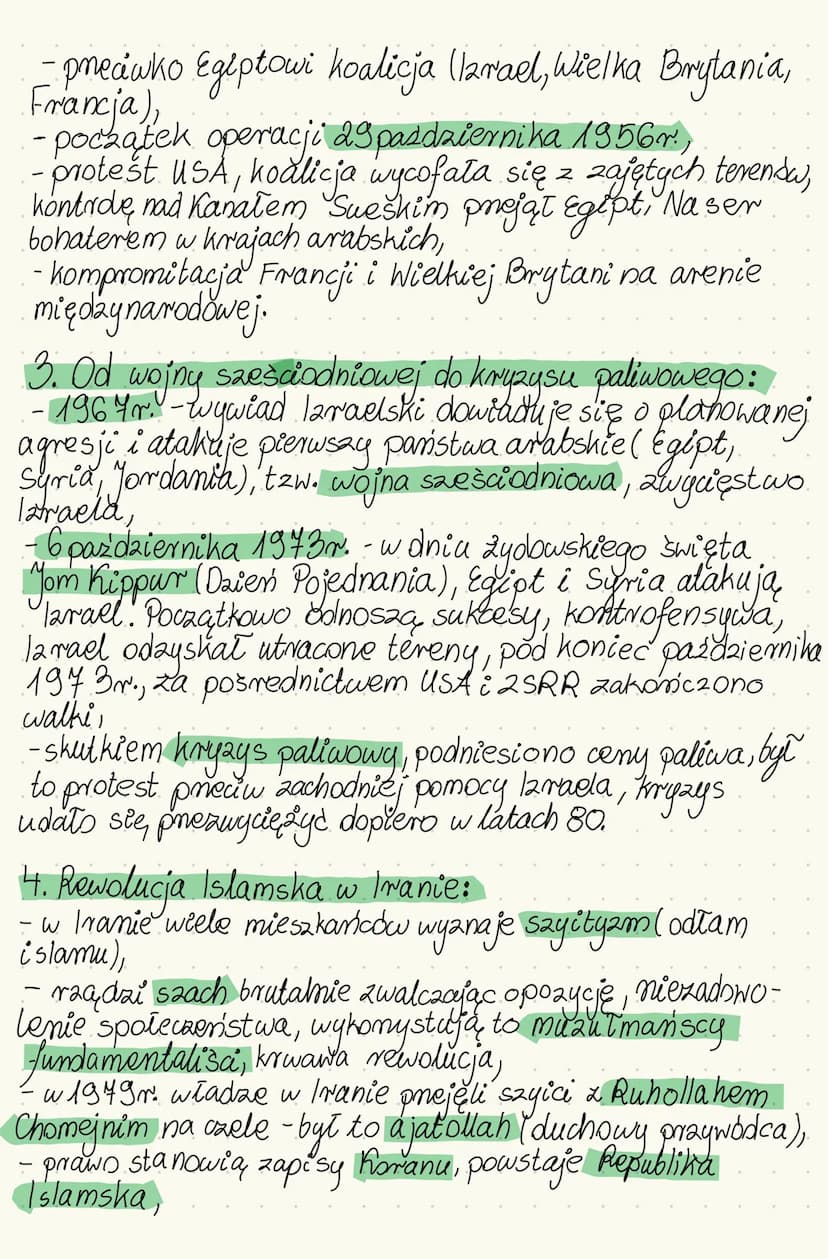 - przeciwko Egiptowi koalicja (Izrael, Wielka Brytania,
Francja),
- początek operacji 29 października 1956r.,
- protest USA, koalicja wycofała się z zajętych terenów,
kontrolę nad Kanałem Sueskim przejął Egipt, Naser
bohaterem w krajach arabskich,
- kompromitacja Francji i Wielkiej Brytani na arenie
międzynarodowej.
3. Od wojny sześciodniowej do kryzysu paliwowego:
- 1967r. - wywiad Izraelski dowiaduje się o planowanej
agresji i atakuje pierwszy państwa arabskie (Egipt,
Syria, Jordania), tzw. wojna sześciodniowa, zwycięstwo
Izraela,
- 6 października 1973r. - w dniu żydowskiego święta
Jom Kippur (Dzień Pojednania), Egipt i Syria atakują
Izrael. Początkowo odnoszą sukcesy, kontrofensywa,
Izrael odzyskał utracone tereny, pod koniec października
1973r., za pośrednictwem USA i ZSRR zakończono
walki,
- skutkiem kryzys paliwowy, podniesiono ceny paliwa, był
to protest przeciw zachodniej pomocy Izraela, kryzys
udało się przezwyciężyć dopiero w latach 80.
4. Rewolucja Islamska w Iranie:
- w Iranie wiele mieszkańców wyznaje szyityzm (odłam
islamu),
- rządzi szach brutalnie zwalczając opozycję, niezadowo-
lenie społeczeństwa, wykorzystują to muzułmańscy
fundamentaliści, krwawa rewolucja,
- w 1979r. władze w Iranie przejęli szyici z Ruhollahem
Chomejnim na czele - był to ajatollah (duchowy przywódca),
- prawo stanowią zapisy Koranu, powstaje Republika
Islamska,